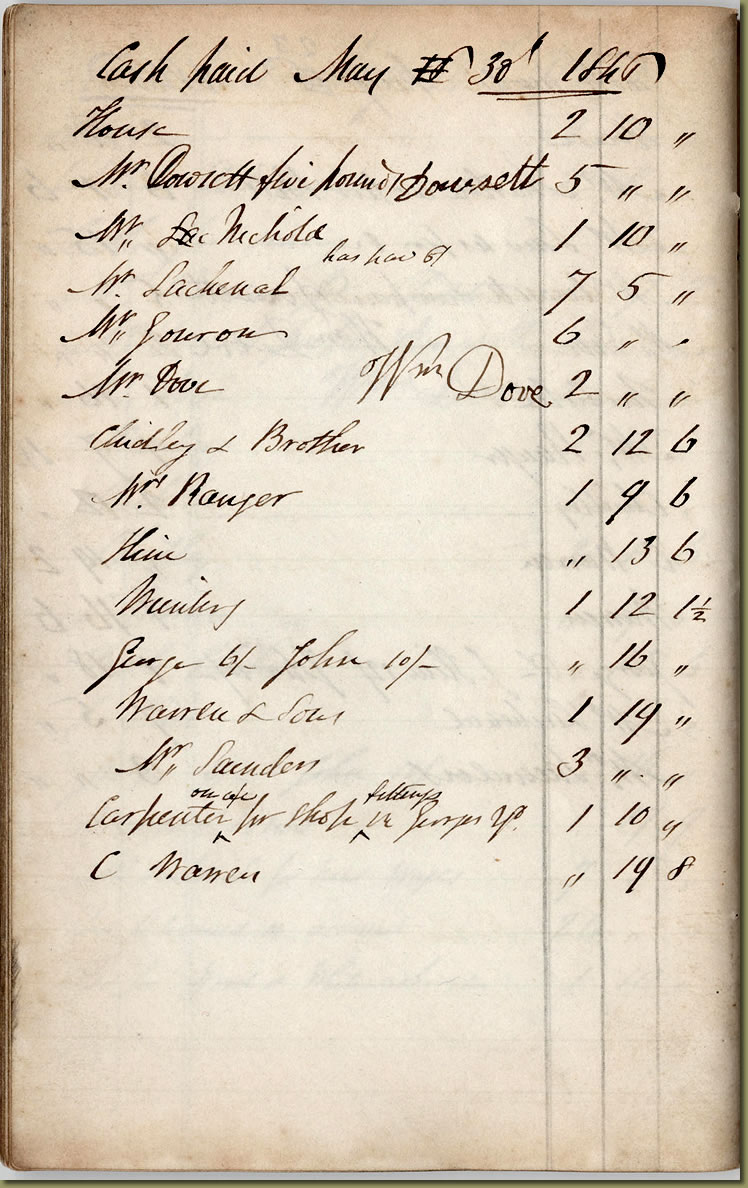 Cash paid May 30th 1846
House 2 10 "
Mr. Dowsett five pounds Dowsett 5 " "
Mr. Nichold 1 10 "
has had 6/
Mr. Lachenal 7 5 "
Mr. Jouron 6 " "
Mr. Dove Wm Dove 2 " "
Chidley & Brother 2 12 6
Mrs. Ranger 1 9 6
Hine " 13 6
1 12 1½
George 6/- John 10/- " 16 "
Warren & Sons 1 19 "
Mr. Saunders 3 " "
on a/c fittings
Carpenter for shop in Georges Yd. 1 10 "
C Warren " 19 8